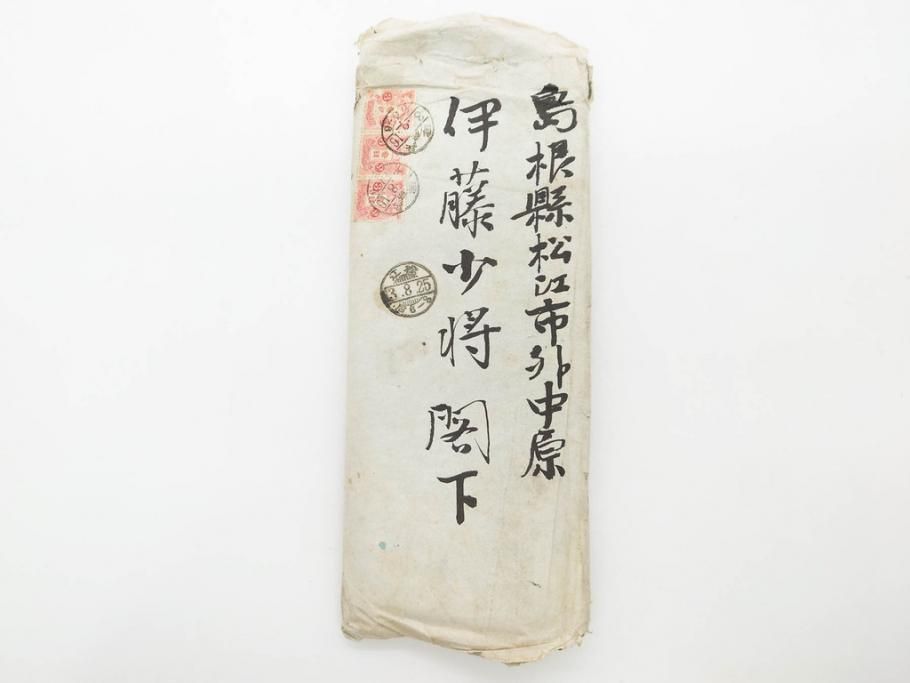 島根縣松江市外中原
伊藤少将閣下
松江
3.8.25